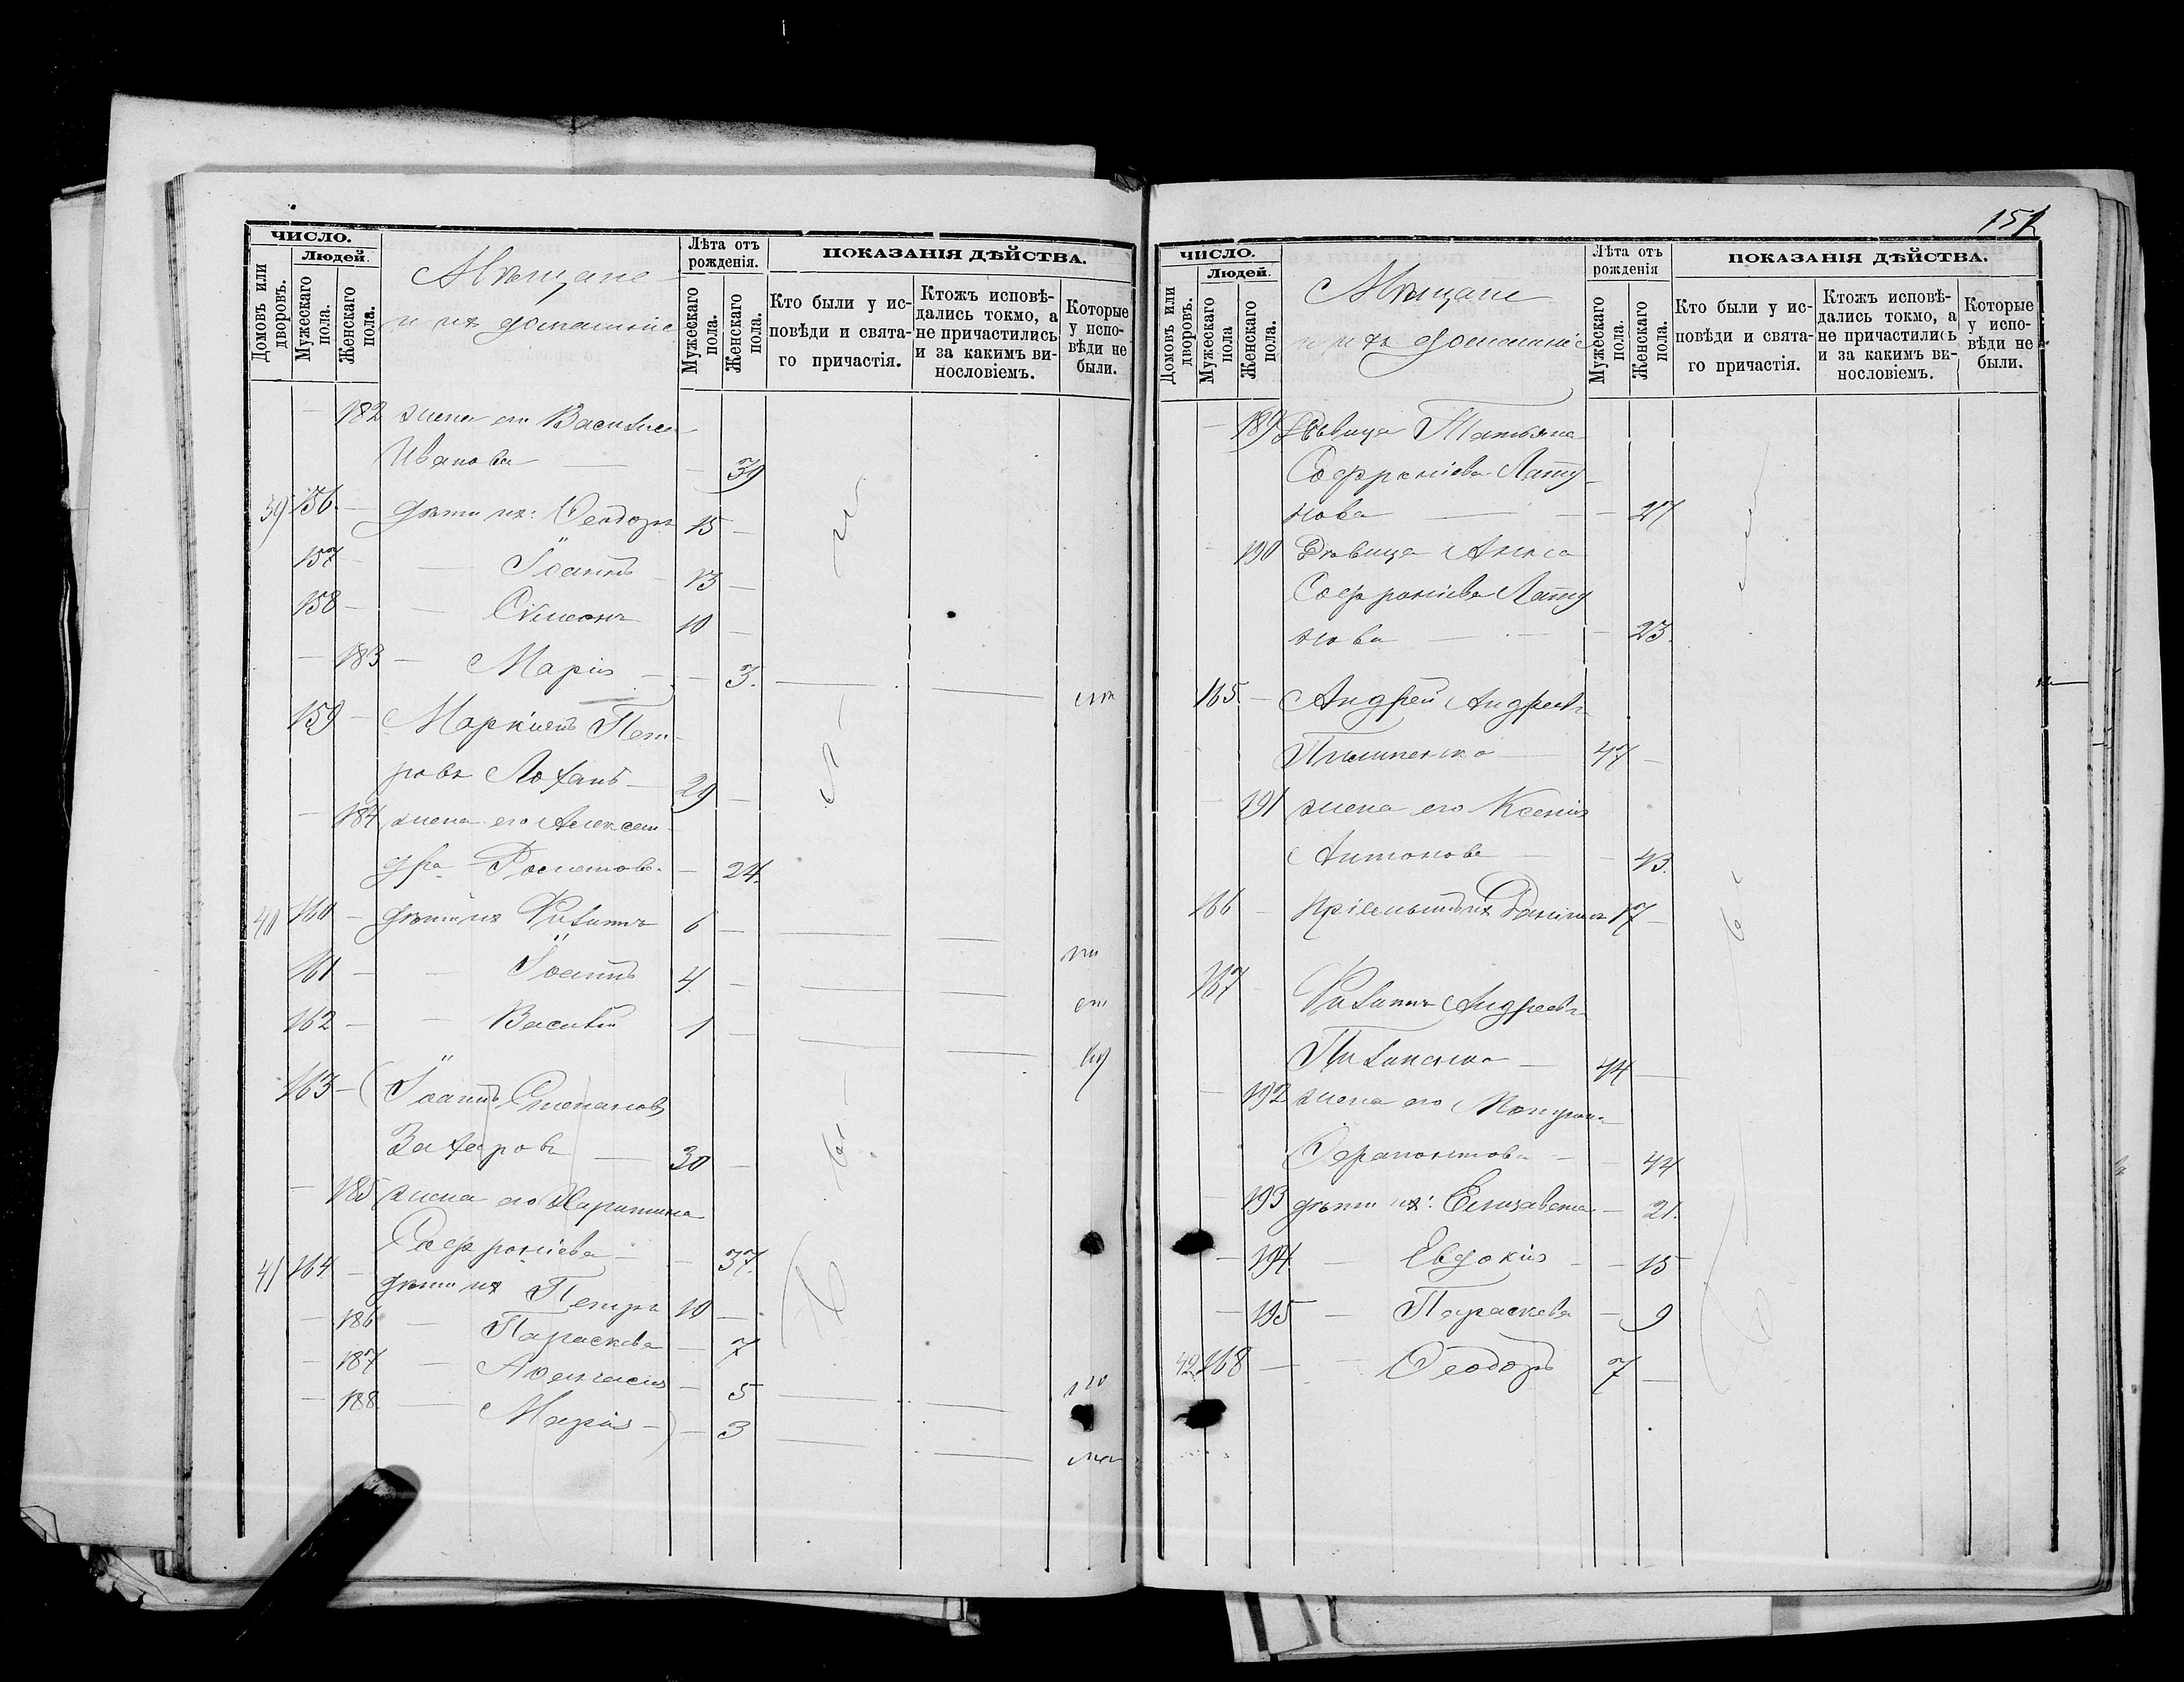 ЧИСЛО.
Людей.
Домовъ или дворовъ.
Мужескаго пола.
Женскаго пола.
Мѣщане
и ихъ домашніе
Лѣта отъ рожденія.
Мужескаго пола.
Женскаго пола.
ПОКАЗАНІЯ ДѢЙСТВА.
Кто были у исповѣди и святаго причастія.
Ктожъ исповѣдались токмо, а не причастились и за какимъ винословіемъ.
Которые у исповѣди не были.
— 182 жена его Василиса
Иванова — — 39
39 156 — дѣти ихъ: Ѳеодоръ 15 —
157 — — Іоаннъ 13 —
158 — — Сѵмеонъ 10 —
— 183 — Марія — — 3.
159 — Маркіанъ Пет-
ровъ 29 —
— 184 жена его Алексан-
дра — 24.
40 160 — дѣти ихъ Филиппъ 6 —
161 — — Іоаннъ 4 —
162 — — Василій 1 —
163 — (Іоаннъ Степановъ
Захаровъ — 30 —
— 185 жена его Харитина
Софроніева — — 37.
41 164 — дѣти ихъ Петръ 10 —
— 186 — Параскева — 7
— 187 — Анастасія — 5
— 188 — Марія —) — 3
151
ЧИСЛО.
Людей.
Домовъ или дворовъ.
Мужескаго пола
Женскаго пола.
Мѣщане
и ихъ домашніе
Лѣта отъ рожденія
Мужескаго пола.
Женскаго пола.
ПОКАЗАНІЯ ДѢЙСТВА.
Кто были у исповѣди и святаго причастія.
Ктожъ исповѣдались токмо, а не причастились и за какимъ винословіемъ.
Которые у исповѣди не были.
— 189 Дѣвица Татьяна
Софроніева Лату-
нова — — 27
— 190 Дѣвица Анна
Софроніева Лату
нова — — 23.
165. — Андрей Андреевъ
47 —
— 191 жена его Ксенія
Антонова — — 43.
166 — пріемышъ ихъ Даніилъ 17 —
167 — Филиппъ Андреевъ
44 —
— 192 жена его Матрона
Ѳерапонтова — — 44
— 193 дѣти ихъ: Елизавета — 21.
— 194. — Евдокія — — 15
— 195 — Параскева — 9
42 168 — — Ѳеодоръ 7 —